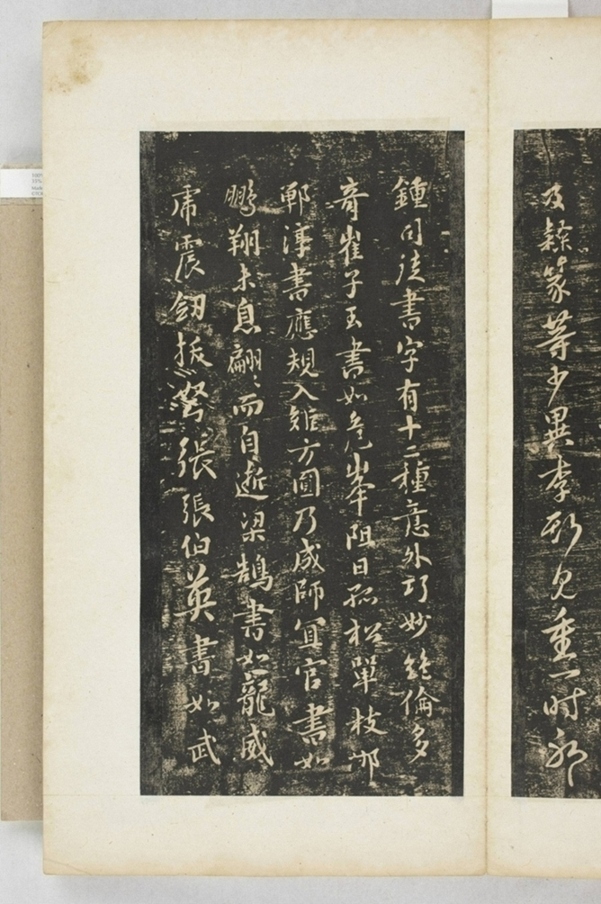 及隸篆等少異李斯見重一時
鍾司徒書字有十二種意外巧妙絶倫多
奇崔子玉書如危峰阻日孤松單枝邯
鄲淳書應規入矩方圓乃成師宜官書如
鵬翔未息翩〻而自逝梁鵠書如龍威
虎震劒拔弩張張伯英書如武